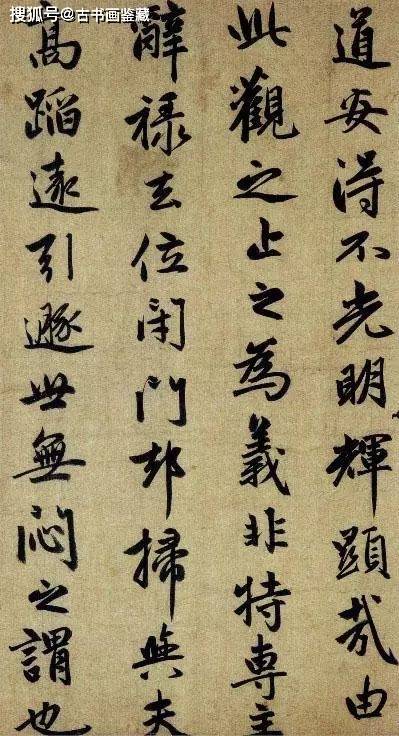 搜狐号@古书画鉴藏
道安得不光明輝顯哉由
此觀之止之為義非特専主
辭祿去位閉門却掃與夫
髙蹈遠引遯世無悶之謂也